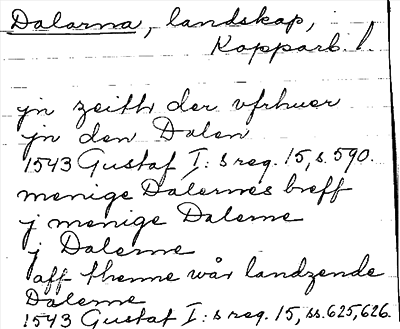 Dalarna, landskap,
Kopparb. l.
jn zeith der vfrhuer
jn den Dalen
1543 Gustaf I:s reg. 15, s. 590.
menige Dalernes breff
j menige Dalerne
j Dalerne
aff thenne wår landzende
Dalerne
1543 Gustaf I:s reg. 15, ss. 625, 626.